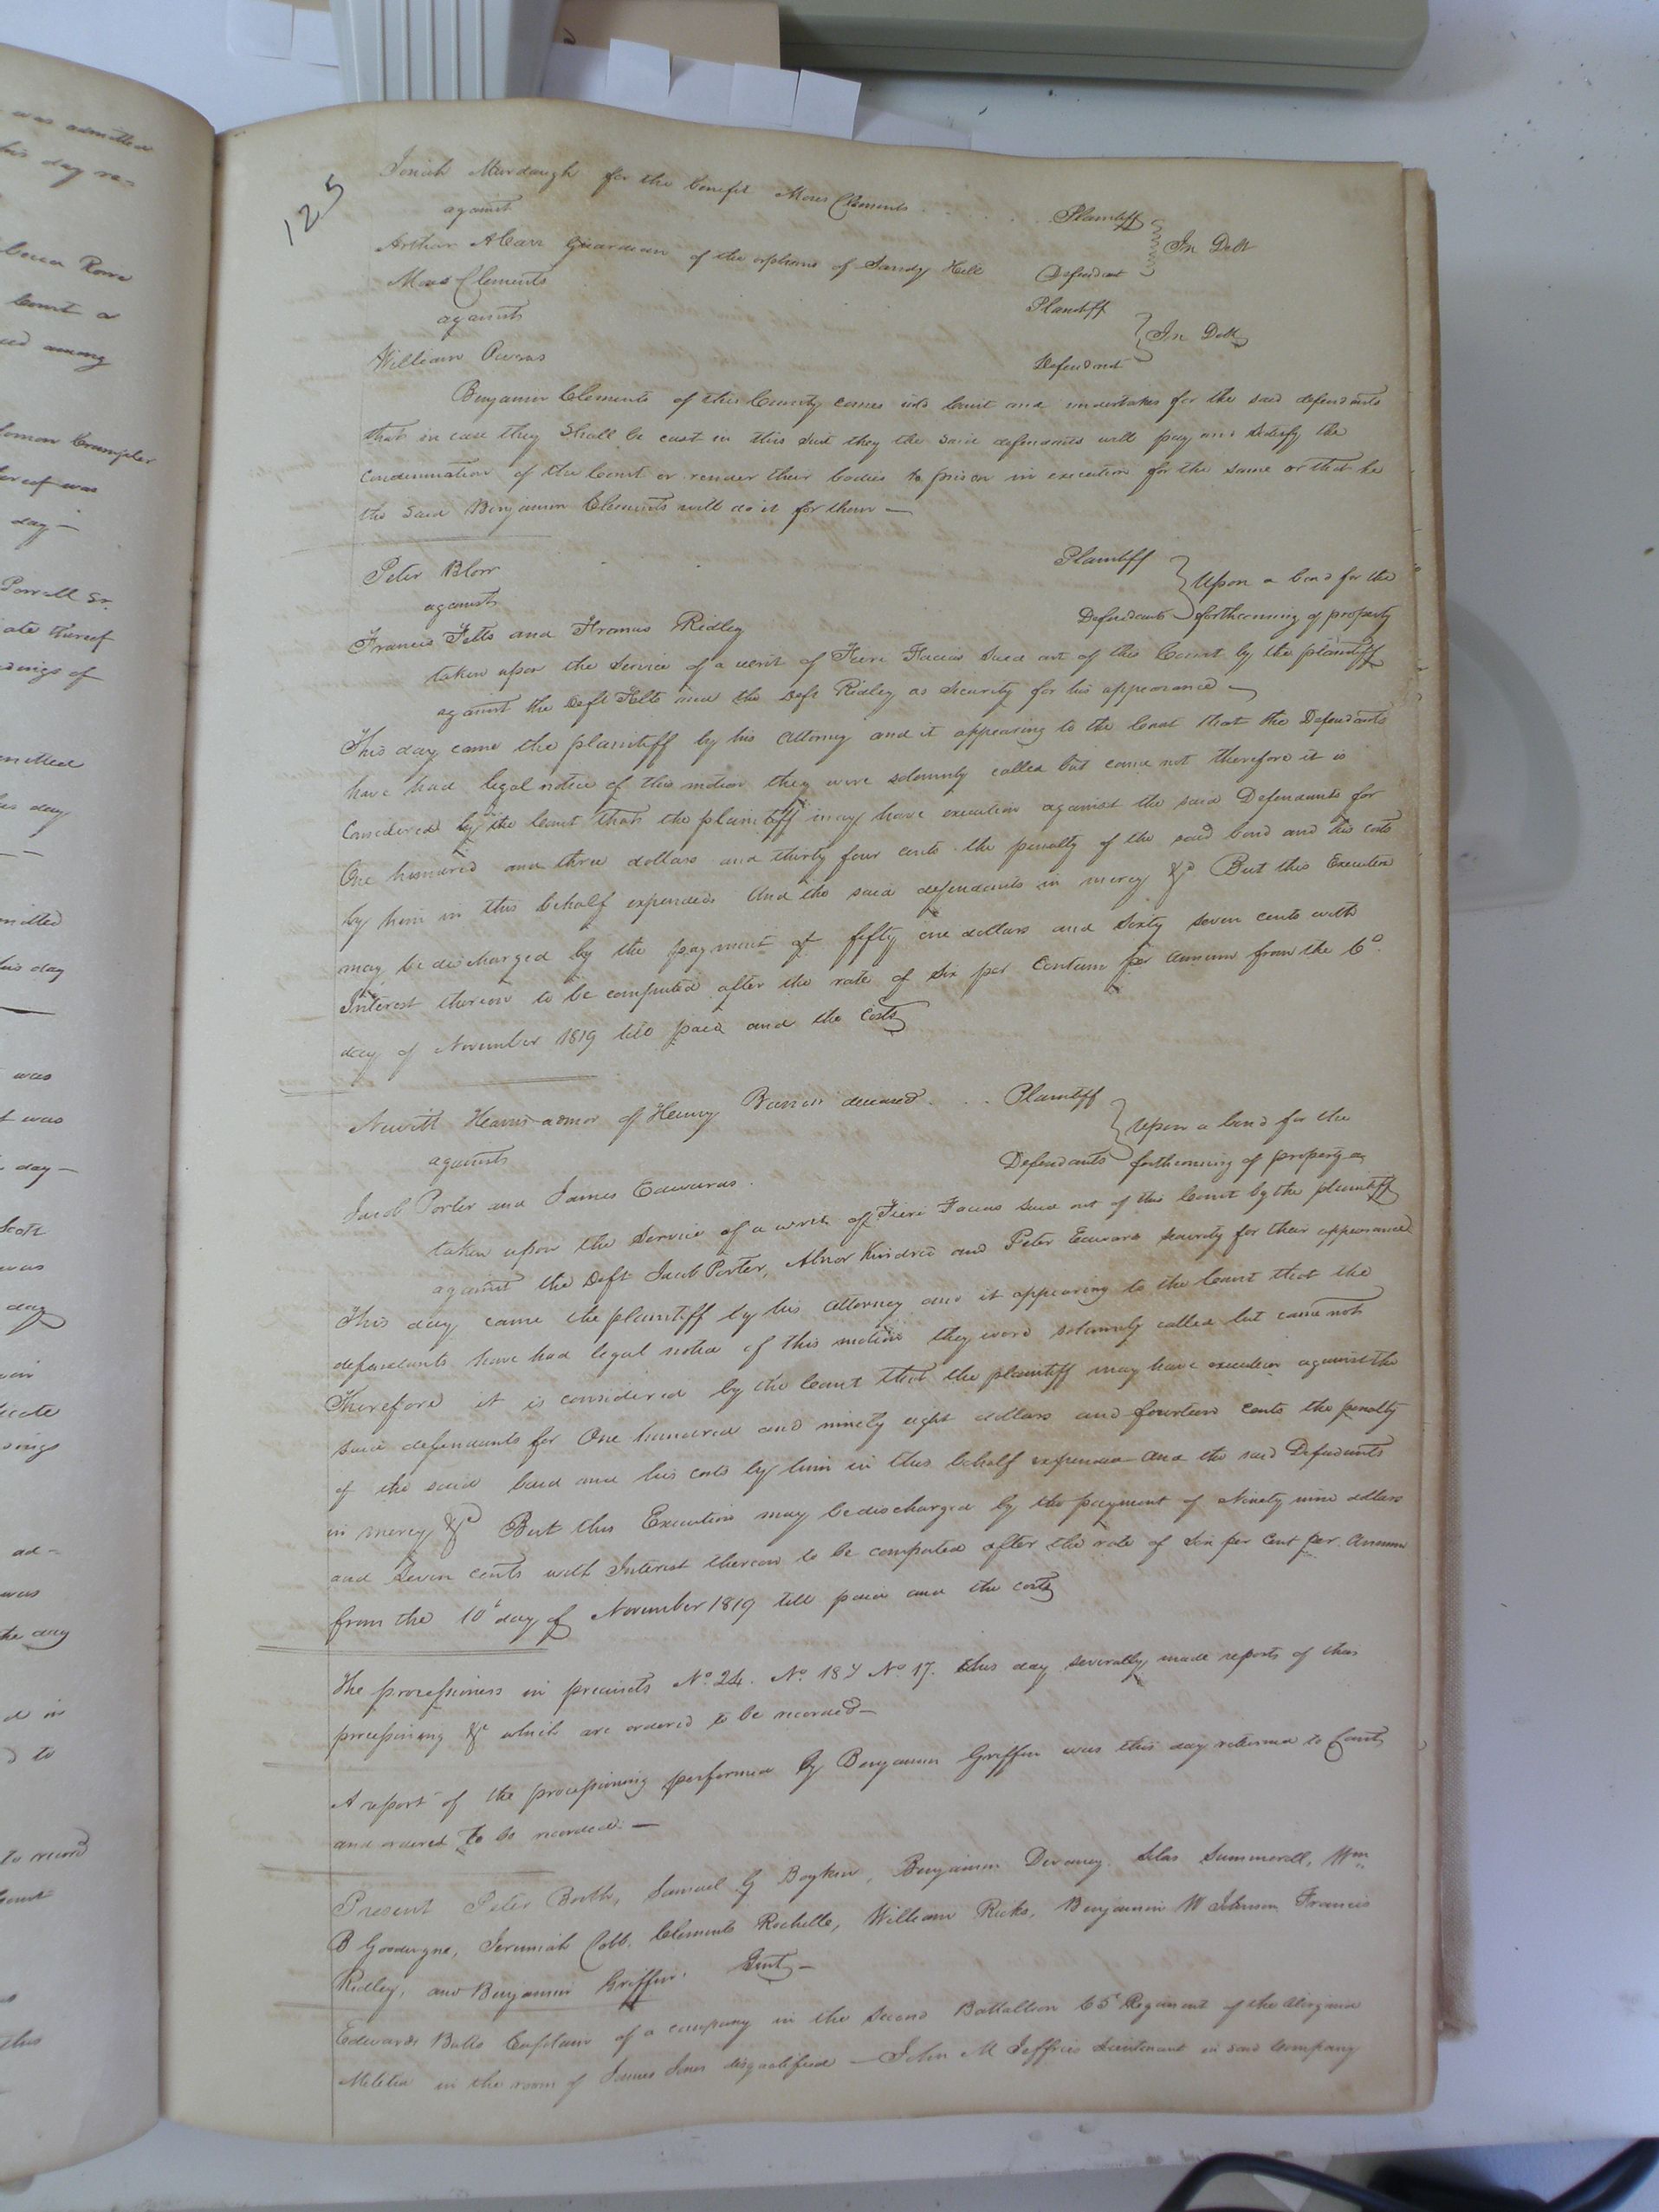 was admitted
his day re-
becca Rowe
Court a
ued among
lomon Crumpler
ereof was
day —
Powell Sr.
ate thereof
edings of
mitted
his day
mitted
his day
was
t was
day —
Scott
was
day
ad-
was
the day
d in
to
to record
Court
this
125
Josiah Murdaugh for the benefit Moses Clements . . . . . . Plaintiff
against } In Debt
Arthur A Carr Guardian of the orphans of Sandy Hill Defendant
Moses Clements Plaintiff
against } In Debt
William Owens Defendant
Benjamin Clements of this County comes into Court and undertakes for the said defendants
that in case they Shall be cast in this Suit they the said defendants will pay and Satisfy the
Condemnation of the Court or render their bodies to prison in execution for the same or that he
the said Benjamin Clements will do it for them —
Peter Blow Plaintiff
against } Upon a bond for the
Francis Felts and Thomas Ridley Defendants forthcoming of property
taken upon the Service of a writ of Fieri Facias Sued out of this Court by the plaintiff
against the Deft Felts and the Deft Ridley as Security for his appearance —
This day came the plaintiff by his Attorney and it appearing to the Court that the Defendants
have had legal notice of this motion they were solemnly called but came not therefore it is
Considered by the Court that the plaintiff may have execution against the said Defendants for
One hundred and three dollars and thirty four cents the penalty of the said bond and his costs
by him in this behalf expended And the said defendants in mercy &c But this Execution
may be discharged by the payment of fifty one dollars and Sixty Seven cents with
Interest thereon to be computed after the rate of Six per Centum per Annum from the 6th
day of November 1819 till paid and the Costs
Newitt Harris admor of Henry deceased . . . Plaintiff
against } Upon a bond for the
Jacob Porter and James Edwards. Defendants forthcoming of property
taken upon the Service of a writ of Fieri Facias Sued out of this Court by the plaintiff
against the Deft Jacob Porter, Abner Kindred and Peter Edwards Security for their appearance
This day came the plaintiff by his Attorney and it appearing to the Court that the
defendants have had legal notice of this motion they were solemnly called but came not
Therefore it is considered by the Court that the plaintiff may have execution against the
said defendants for One hundred and ninety eight dollars and fourteen Cents the penalty
of the said bond and his costs by him in this behalf expended and the said Defendants
in mercy &c But this Execution may be discharged by the payment of Ninety nine dollars
and Seven cents with Interest thereon to be computed after the rate of Six per Cent per Annum
from the 10th day of November 1819 till paid and the costs
The processioners in precincts No 24. No 18 & No 17. this day severally made reports of their
processioning &c which are ordered to be recorded —
A report of the processioning performed by Benjamin Griffin was this day returned to Court
and ordered to be recorded. —
Present Peter Booth, Samuel G Boykin, Benjamin Devany, Silas Summerell, Wm
B Goodwyn, Jeremiah Cobb, Clements Rochelle, William Ricks, Benjamin W Johnson Francis
Ridley, and Benjamin Griffin. Gent. —
Edwards Butts Captain of a company in the Second Battallion 65th Regiment of the Virginia
Militia in the room of James Jones disqualified — John M Jeffries Lieutenant in said Company